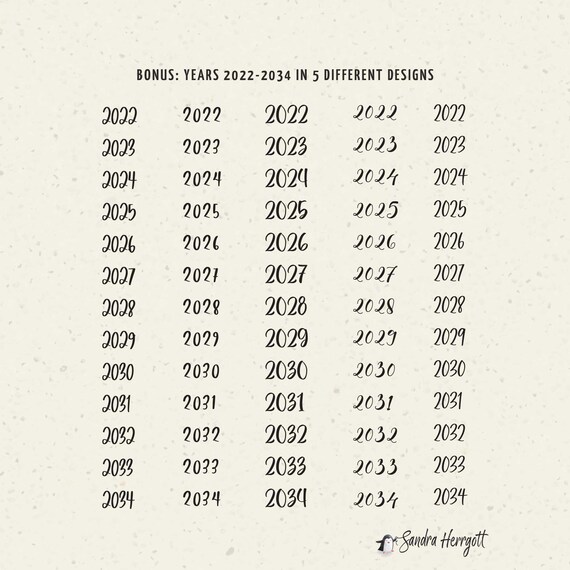 BONUS: YEARS 2022-2034 IN 5 DIFFERENT DESIGNS
2022 2022 2022 2022 2022
2023 2023 2023 2023 2023
2024 2024 2024 2024 2024
2025 2025 2025 2025 2025
2026 2026 2026 2026 2026
2027 2027 2027 2027 2027
2028 2028 2028 2028 2028
2029 2029 2029 2029 2029
2030 2030 2030 2030 2030
2031 2031 2031 2031 2031
2032 2032 2032 2032 2032
2033 2033 2033 2033 2033
2034 2034 2034 2034 2034
Sandra Herrgott